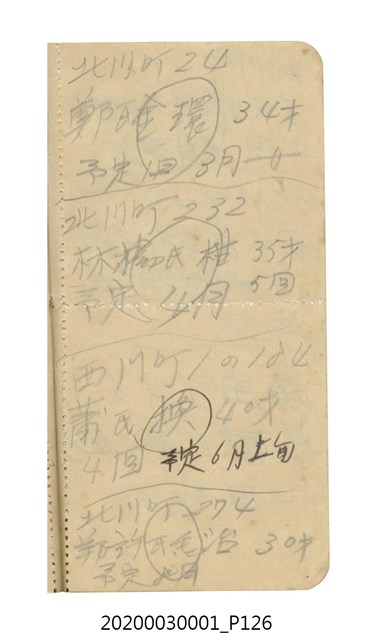 北川町24
鄭氏 環 34才
予定 4回 3月
北川町 232
林楊氏 柑 35才
予定 4月 5回
西川町1の184
蕭氏 換 40才
4回 予定 6月上旬
北川町 274
鄭許氏 30才
予定
20200030001_P126